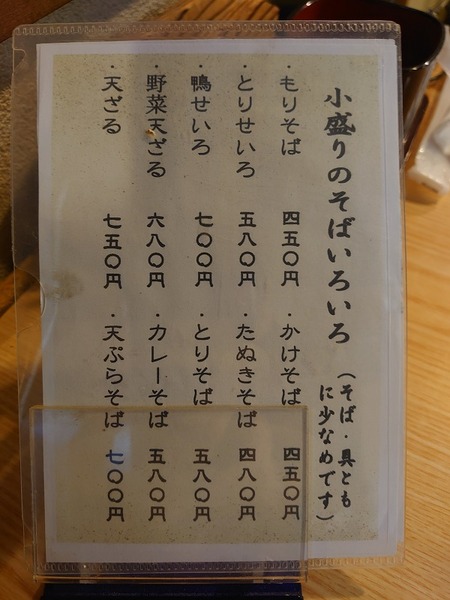 小盛りのそばいろいろ
（そば・具とも
に少なめです）
・もりそば 四五〇円
・かけそば 四五〇円
・とりせいろ 五八〇円
・たぬきそば 四八〇円
・鴨せいろ 七〇〇円
・とりそば 五八〇円
・野菜天ざる 六八〇円
・カレーそば 五八〇円
・天ざる 七五〇円
・天ぷらそば 七〇〇円